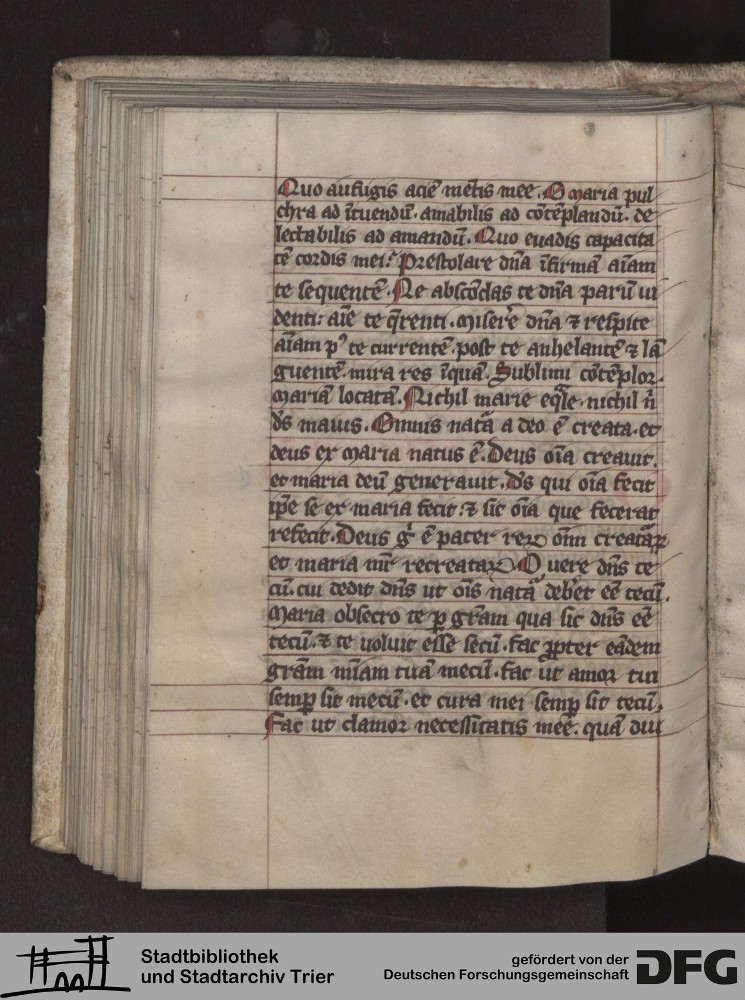 Quo aufugis aciē mētis mee. O maria pul
chra ad ītuendū. amabilis ad cōtēplandū. de
lectabilis ad amandū. Quo euadis capacita
tē cordis mei? Prestolare dn̄a īfirmā aīam
te sequentē. Ne abscōdas te dn̄a parū ui
denti: aīe te q̄renti. Miserere dn̄a ⁊ respice
aīam pꝰ te currentē. post te anhelantē ⁊ lā
guentē. mira res īquā. Sublimi cōtēplor.
Mariā locatā. Nichil marie eq̄le. nichil n̄
ds̄ maius. Omnis natā a deo ē creata. et
deus ex Maria natus ē. Deus oīa creauit.
et maria deū generauit. Ds̄ qui oīa fecit
ip̄e se ex maria fecit: ⁊ sic oīa que fecerat
refecit. Deus gͥ ē pater rerꝝ om̄i creatarꝝ
et maria mr̄ recreatarꝝ. O uere dn̄s te
cū. cui dedit dn̄s ut oīs natā deberet eē tecū.
Maria obsecro te ꝑ grām qua sic dn̄s eē
tecū. ⁊ te uoluit esse secū. fac ꝓpter eādem
grām mīam tuā mecū. fac ut amor tui
semꝑ sit mecū. et cura mei semꝑ sit tecū.
Fac ut clamor necessitatis mee. quā diu
Stadtbibliothek
und Stadtarchiv Trier
gefördert von der
Deutschen Forschungsgemeinschaft
DFG